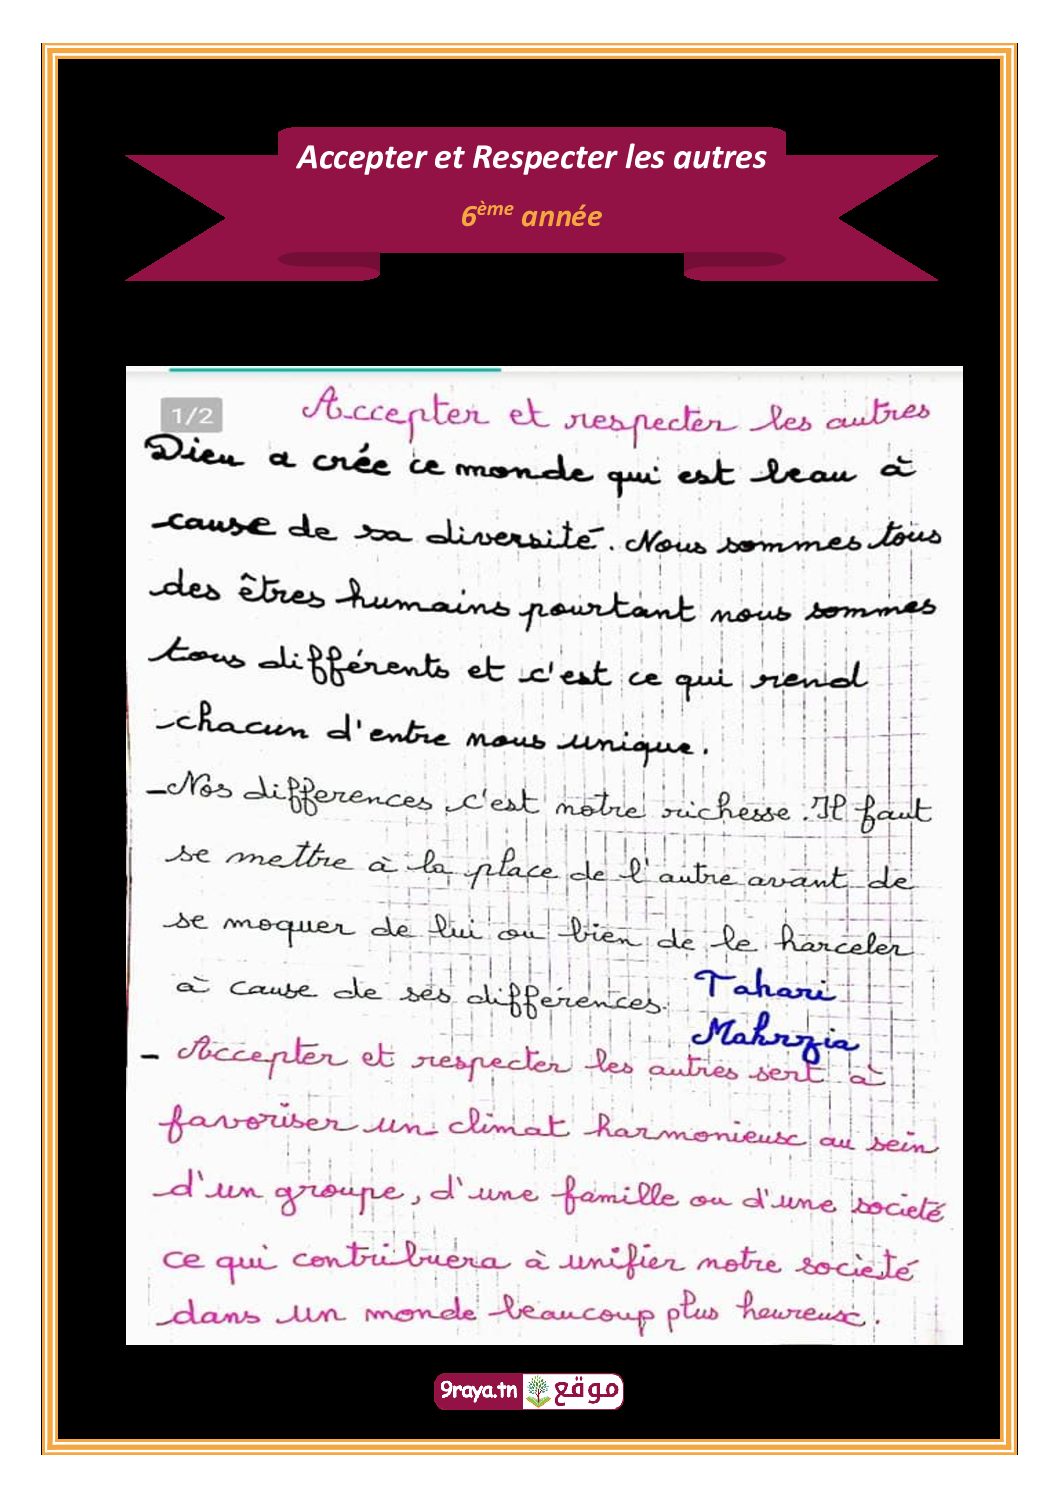 Accepter et Respecter les autres
6ème année
1/2
Accepter et respecter les autres
Dieu a crée ce monde qui est beau à
cause de sa diversité. Nous sommes tous
des êtres humains pourtant nous sommes
tous différents et c'est ce qui rend
chacun d'entre nous unique.
- Nos differences c'est notre richesse. Il faut
se mettre à la place de l'autre avant de
se moquer de lui ou bien de le harceler
à cause de ses différences.
Tahari
Mahrzia
- Accepter et respecter les autres sert à
favoriser un climat harmonieux au sein
d'un groupe, d'une famille ou d'une societé
ce qui contribuera à unifier notre societé
dans un monde beaucoup plus heureux.
9raya.tn موقع